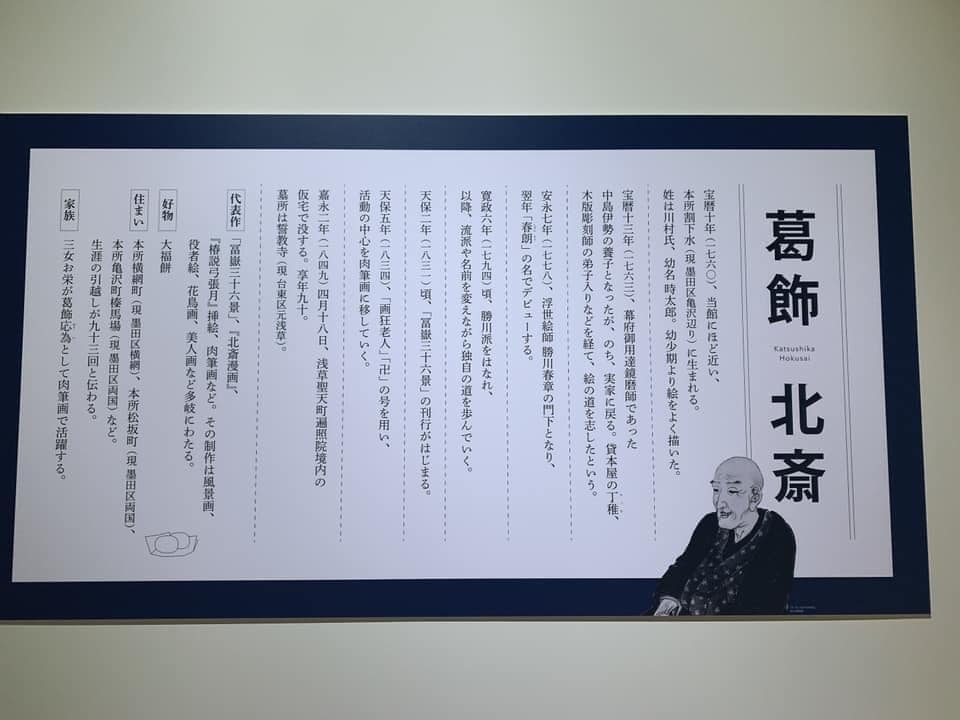 葛飾 北斎
Katsushika
Hokusai
宝暦十年(一七六〇)、当館にほど近い、
本所割下水(現 墨田区亀沢辺り)に生まれる。
姓は川村氏、幼名 時太郎。幼少期より絵をよく描いた。
宝暦十三年(一七六三)、幕府御用達鏡磨師であった
中島伊勢の養子となったが、のち、実家に戻る。貸本屋の丁稚、
木版彫刻師の弟子入りなどを経て、絵の道を志したという。
安永七年(一七七八)、浮世絵師 勝川春章の門下となり、
翌年「春朗」の名でデビューする。
寛政六年(一七九四)頃、勝川派をはなれ、
以降、流派や名前を変えながら独自の道を歩んでいく。
天保二年(一八三一)頃、「冨嶽三十六景」の刊行がはじまる。
天保五年(一八三四)、「画狂老人」「卍」の号を用い、
活動の中心を肉筆画に移していく。
嘉永二年(一八四九)四月十八日、浅草聖天町遍照院境内の
仮宅で没する。享年九十。
墓所は誓教寺(現 台東区元浅草)。
代表作 「冨嶽三十六景」、『北斎漫画』、
『椿説弓張月』挿絵、肉筆画など。その制作は風景画、
役者絵、花鳥画、美人画など多岐にわたる。
好物 大福餅
住まい 本所横網町(現 墨田区横網)、本所松坂町(現 墨田区両国)、
本所亀沢町榛馬場(現 墨田区両国)など。
生涯の引越しが九十三回と伝わる。
家族 三女お栄が葛飾応為として肉筆画で活躍する。